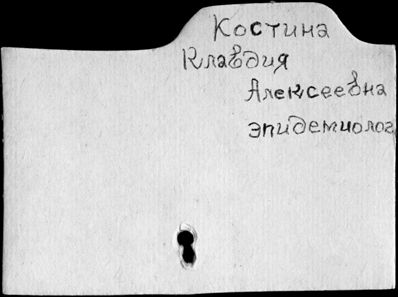 Костина
Клавдия
Алексеевна
эпидемиолог